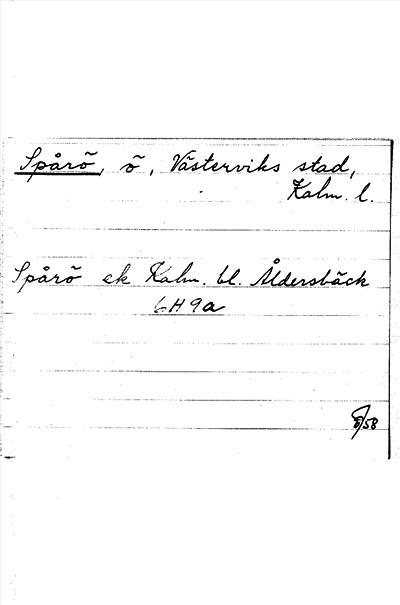 Spårö, ö, Västerviks stad,
Kalm. l.
Spårö ek Kalm. bl. Åldersbäck
6H9a
/58